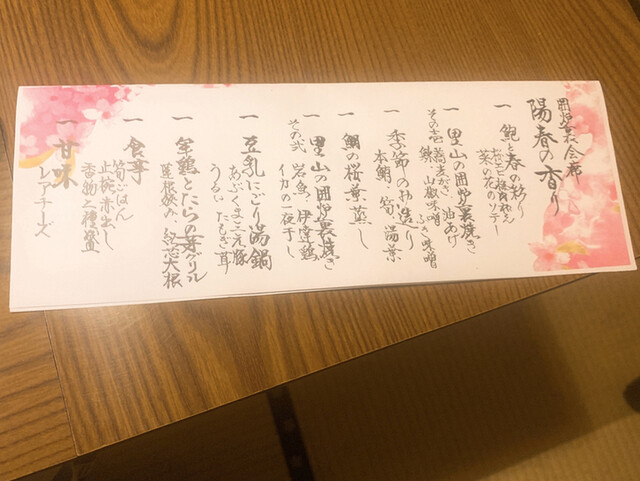 囲炉裏会席
陽春の香り
一 鮑と春の彩り
菜の花のソテー
一 里山の囲炉裏焼き
その壱 蕎麦がき 油あげ
鰊 山椒味噌 ふき味噌
一 季節のお造り
本鯛、筍、湯葉
一 鯛の桜葉蒸し
一 里山の囲炉裏焼き
その弐 岩魚、伊達鶏
イカの一夜干し
一 豆乳にごり湯鍋
あぶくま三元豚
うるい たもぎ茸
一 軍鶏とたらの芽グリル
蓮根餅、紅芯大根
一 食事
筍ごはん
止椀 赤出し
香物二種盛
一 甘味
レアチーズ